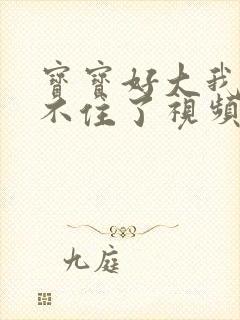 寶寶好大我
不住了視頻
九庭